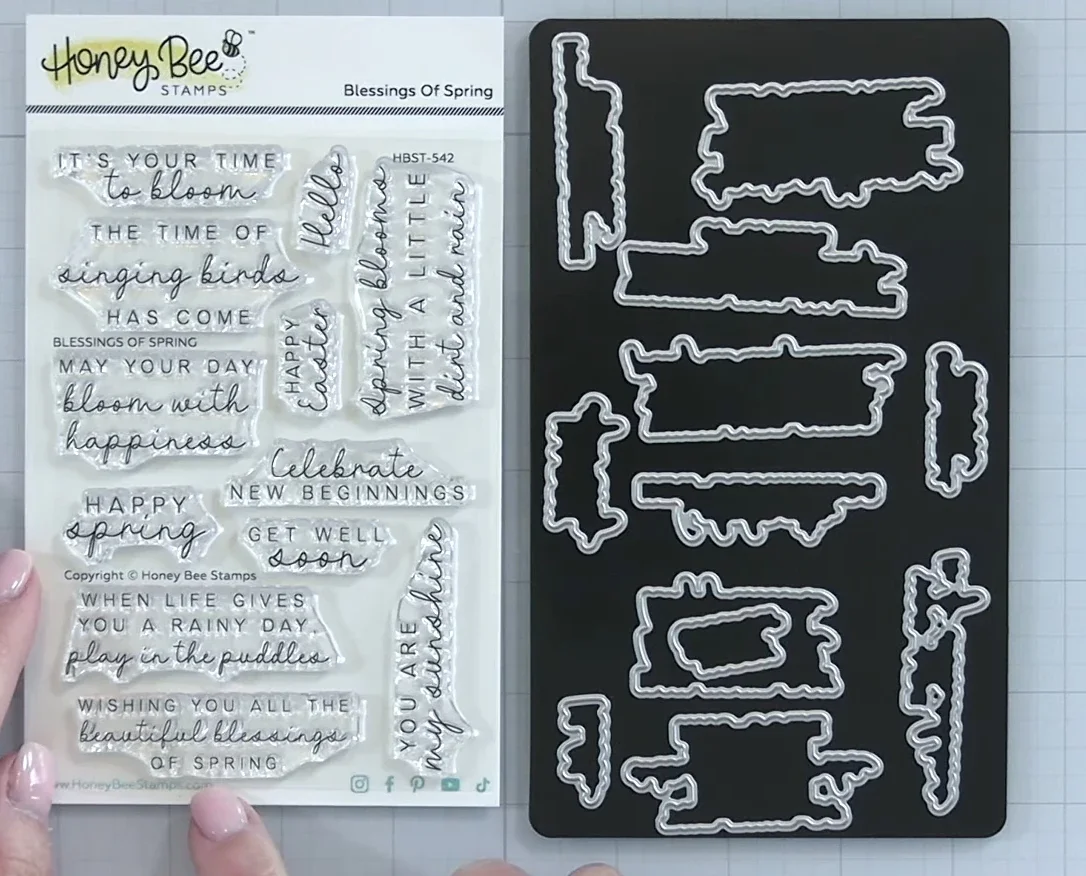 Honey Bee
STAMPS
Blessings Of Spring
HBST-542
IT'S YOUR TIME
to bloom
Hello
THE TIME OF
singing birds
HAS COME
spring blooms
WITH A LITTLE
dirt and rain
HAPPY
Easter
BLESSINGS OF SPRING
MAY YOUR DAY
bloom with
happiness
Celebrate
NEW BEGINNINGS
HAPPY
spring
GET WELL
soon
YOU ARE
my sunshine
Copyright © Honey Bee Stamps
WHEN LIFE GIVES
YOU A RAINY DAY,
play in the puddles
WISHING YOU ALL THE
beautiful blessings
OF SPRING
w.HoneyBeeStamps.com